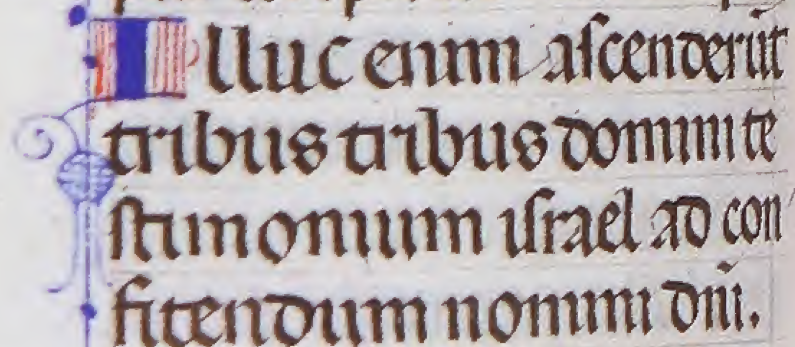 Illuc enim ascenderūt
tribus tribus domini te
stimonium israel ad con
fitendum nomini dn̄i.